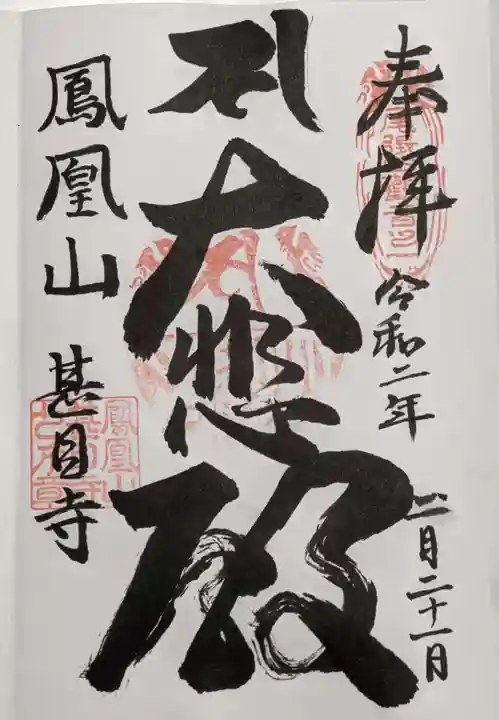 奉拝
令和二年
月二十一日
大悲殿
鳳凰山
甚目寺
鳳凰山